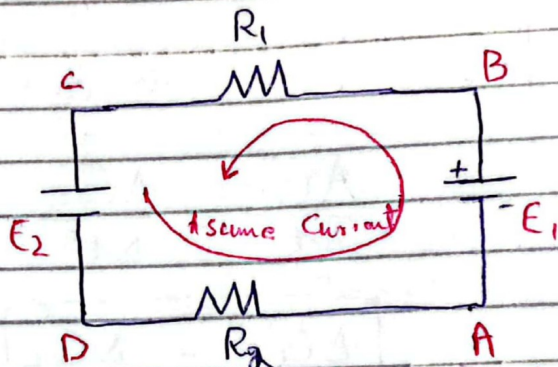 R1
C
B
+
E2
Assume Current
-
E1
D
R2
A